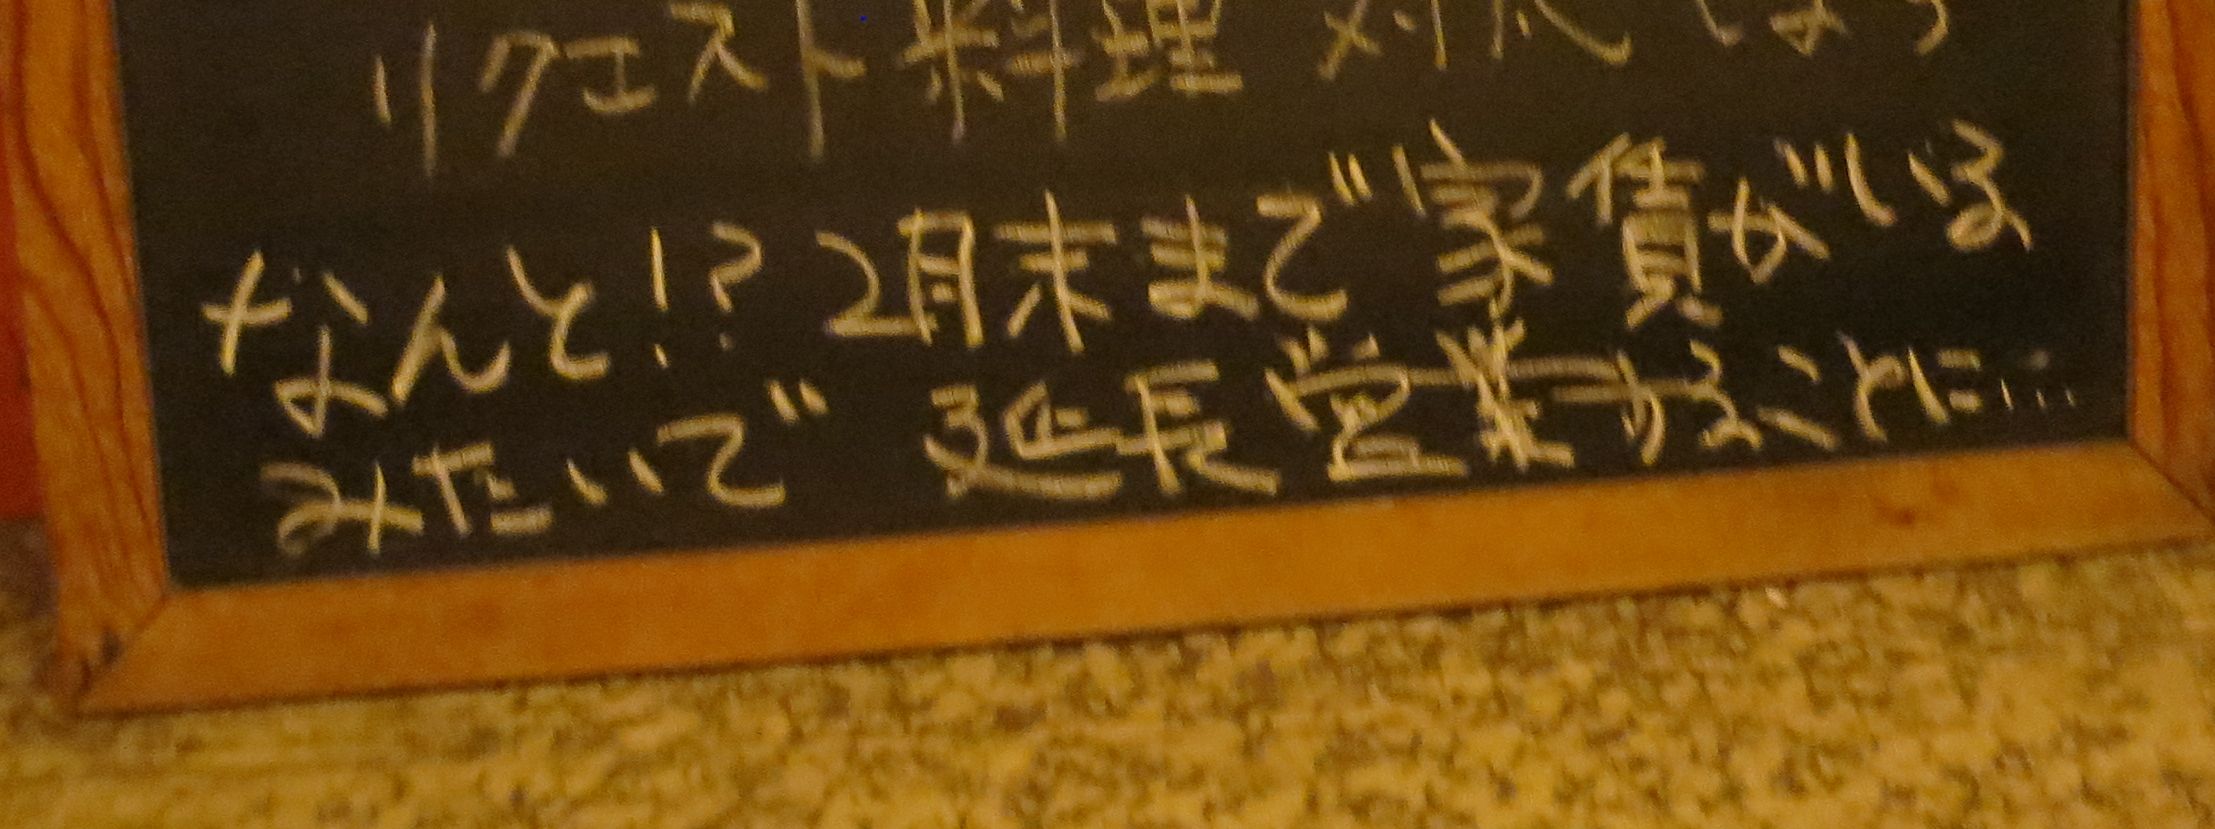 リクエスト料理 対応します
なんと!? 2月末まで家賃がいる
みたいで 延長営業することに…